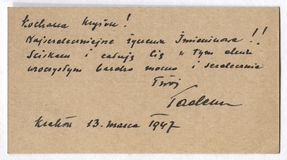 Kochana Krysiu!
Najserdeczniejsze życzenia Imieninowe!!
Ściskam i całuję Cię w tym dniu
uroczystym bardzo mocno i serdecznie
Twój
Tadeusz
Kraków 13. marca 1947